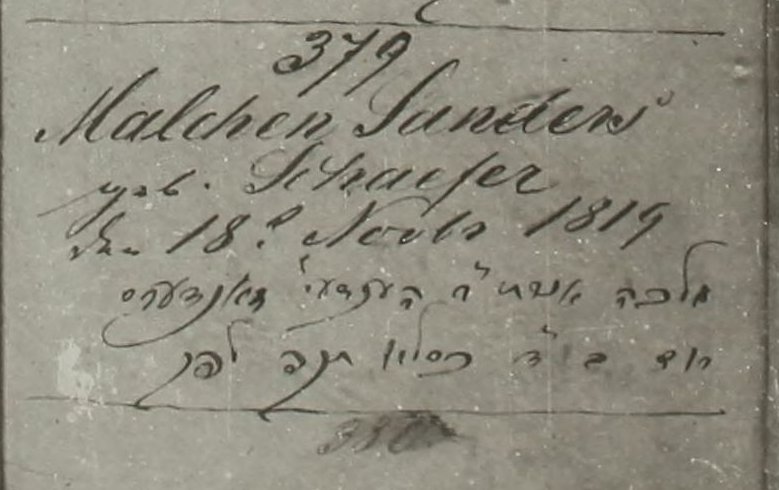 379
Malchen Sanders
geb. Schaefer
den 18t Novbr 1819
מלכה אשת ר' זאנדערס
כסליו תקפ לפק
380